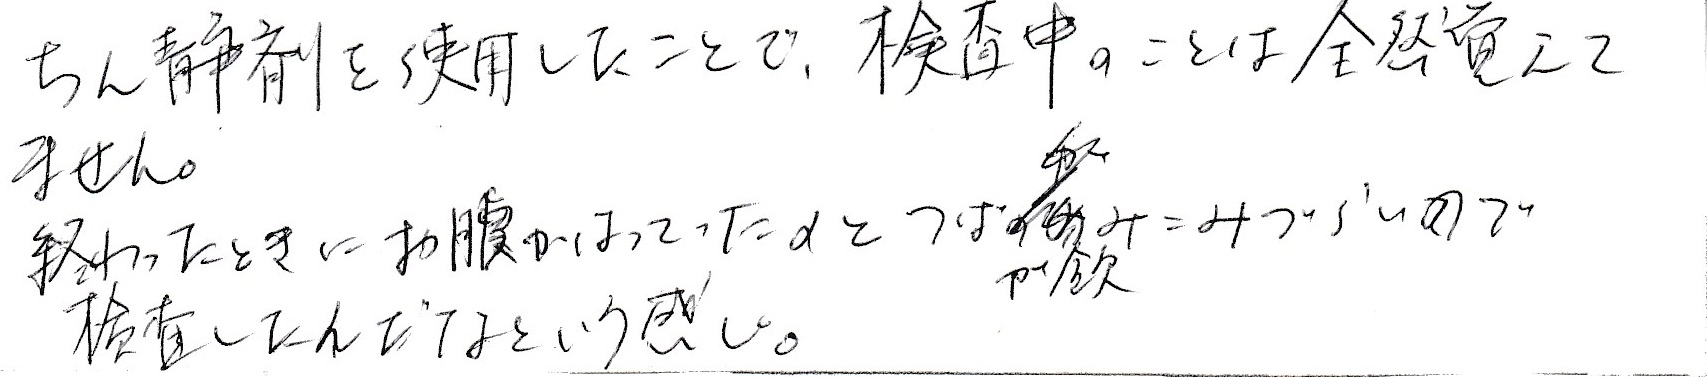 ちん静剤を使用したことで、検査中のことは全然覚えて
ません。
終わったときにお腹がはってったのとつばが飲みこみづらいので
検査したんだなという感じ。